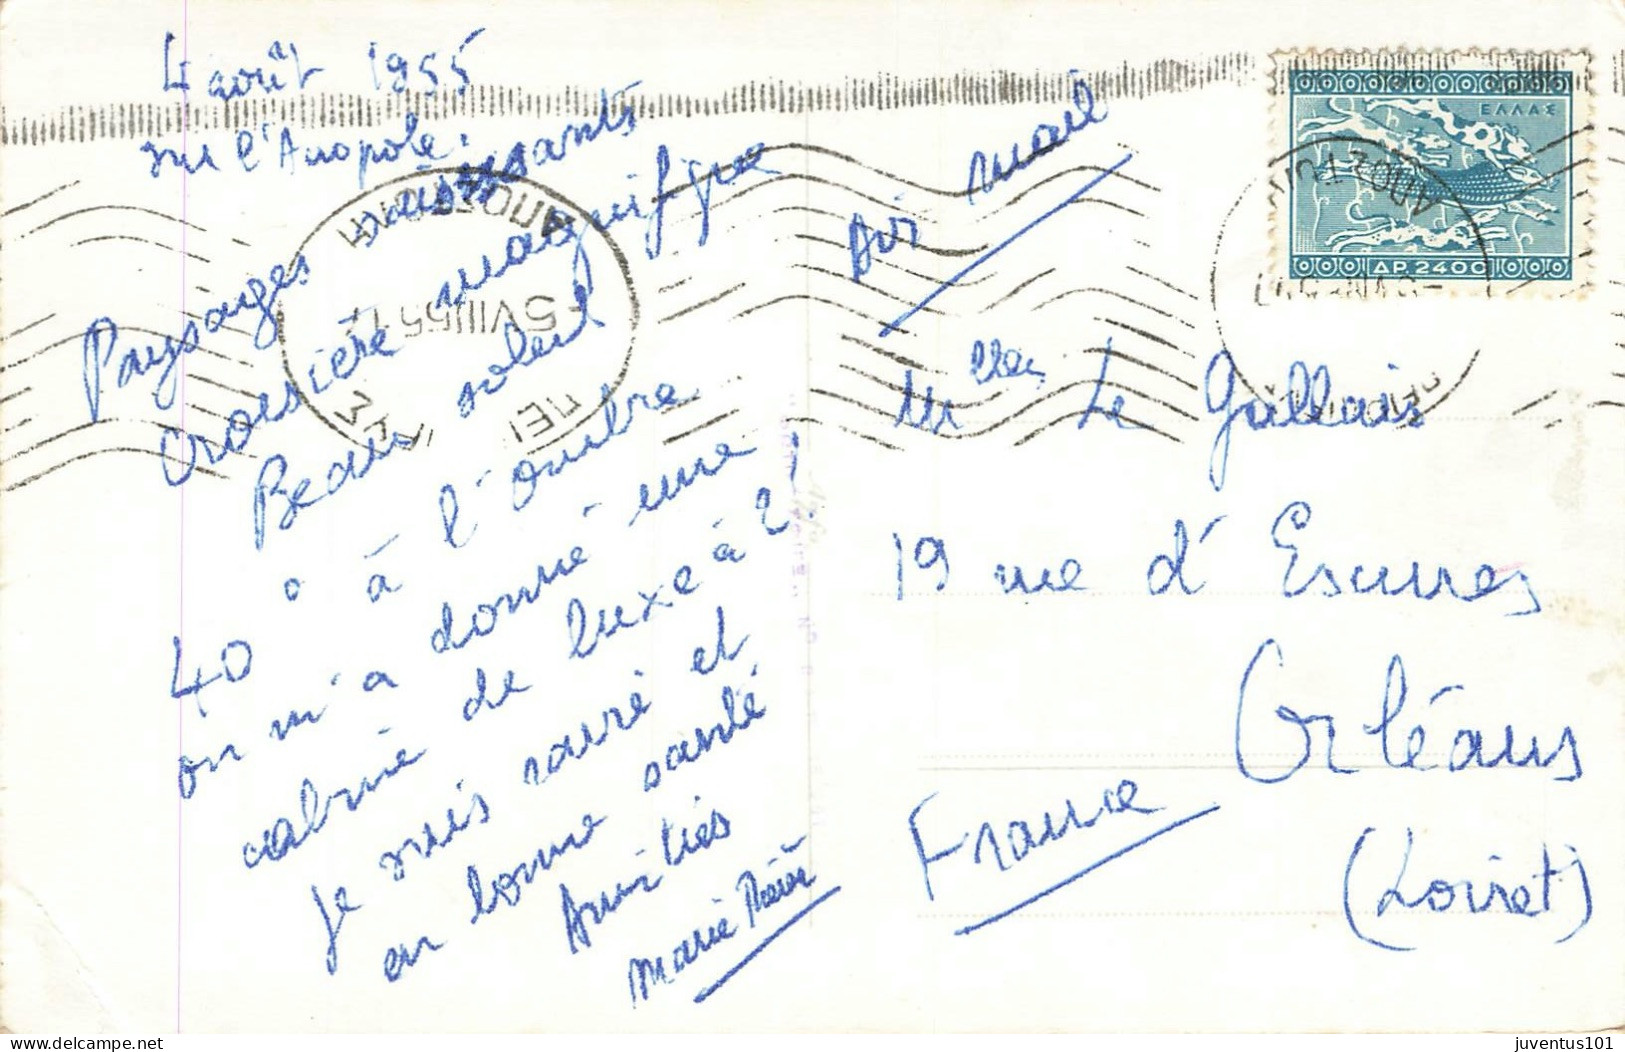 4 août 1955
sur l'Acropole.
Paysages ravissants
croisière magnifique
Beau soleil
40° à l'ombre
on m'a donné une
cabine de luxe à 2!
Je suis ravie et
en bonne santé
Amitiés
Marie
air mail
ΕΛΛΑΣ
ΔΡ. 2400
5 VIII 55
M elles Le Gallais
19 rue d'Escures
Orléans
France
(Loiret)
juventus101